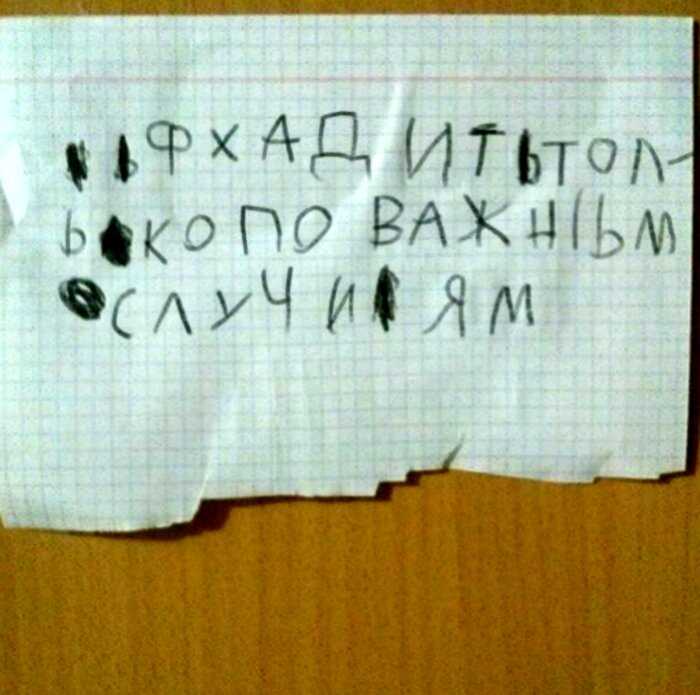 ФХАДИТЬТОЛ-
ЬКОПОВАЖНІЬМ
СЛУЧИЯМ